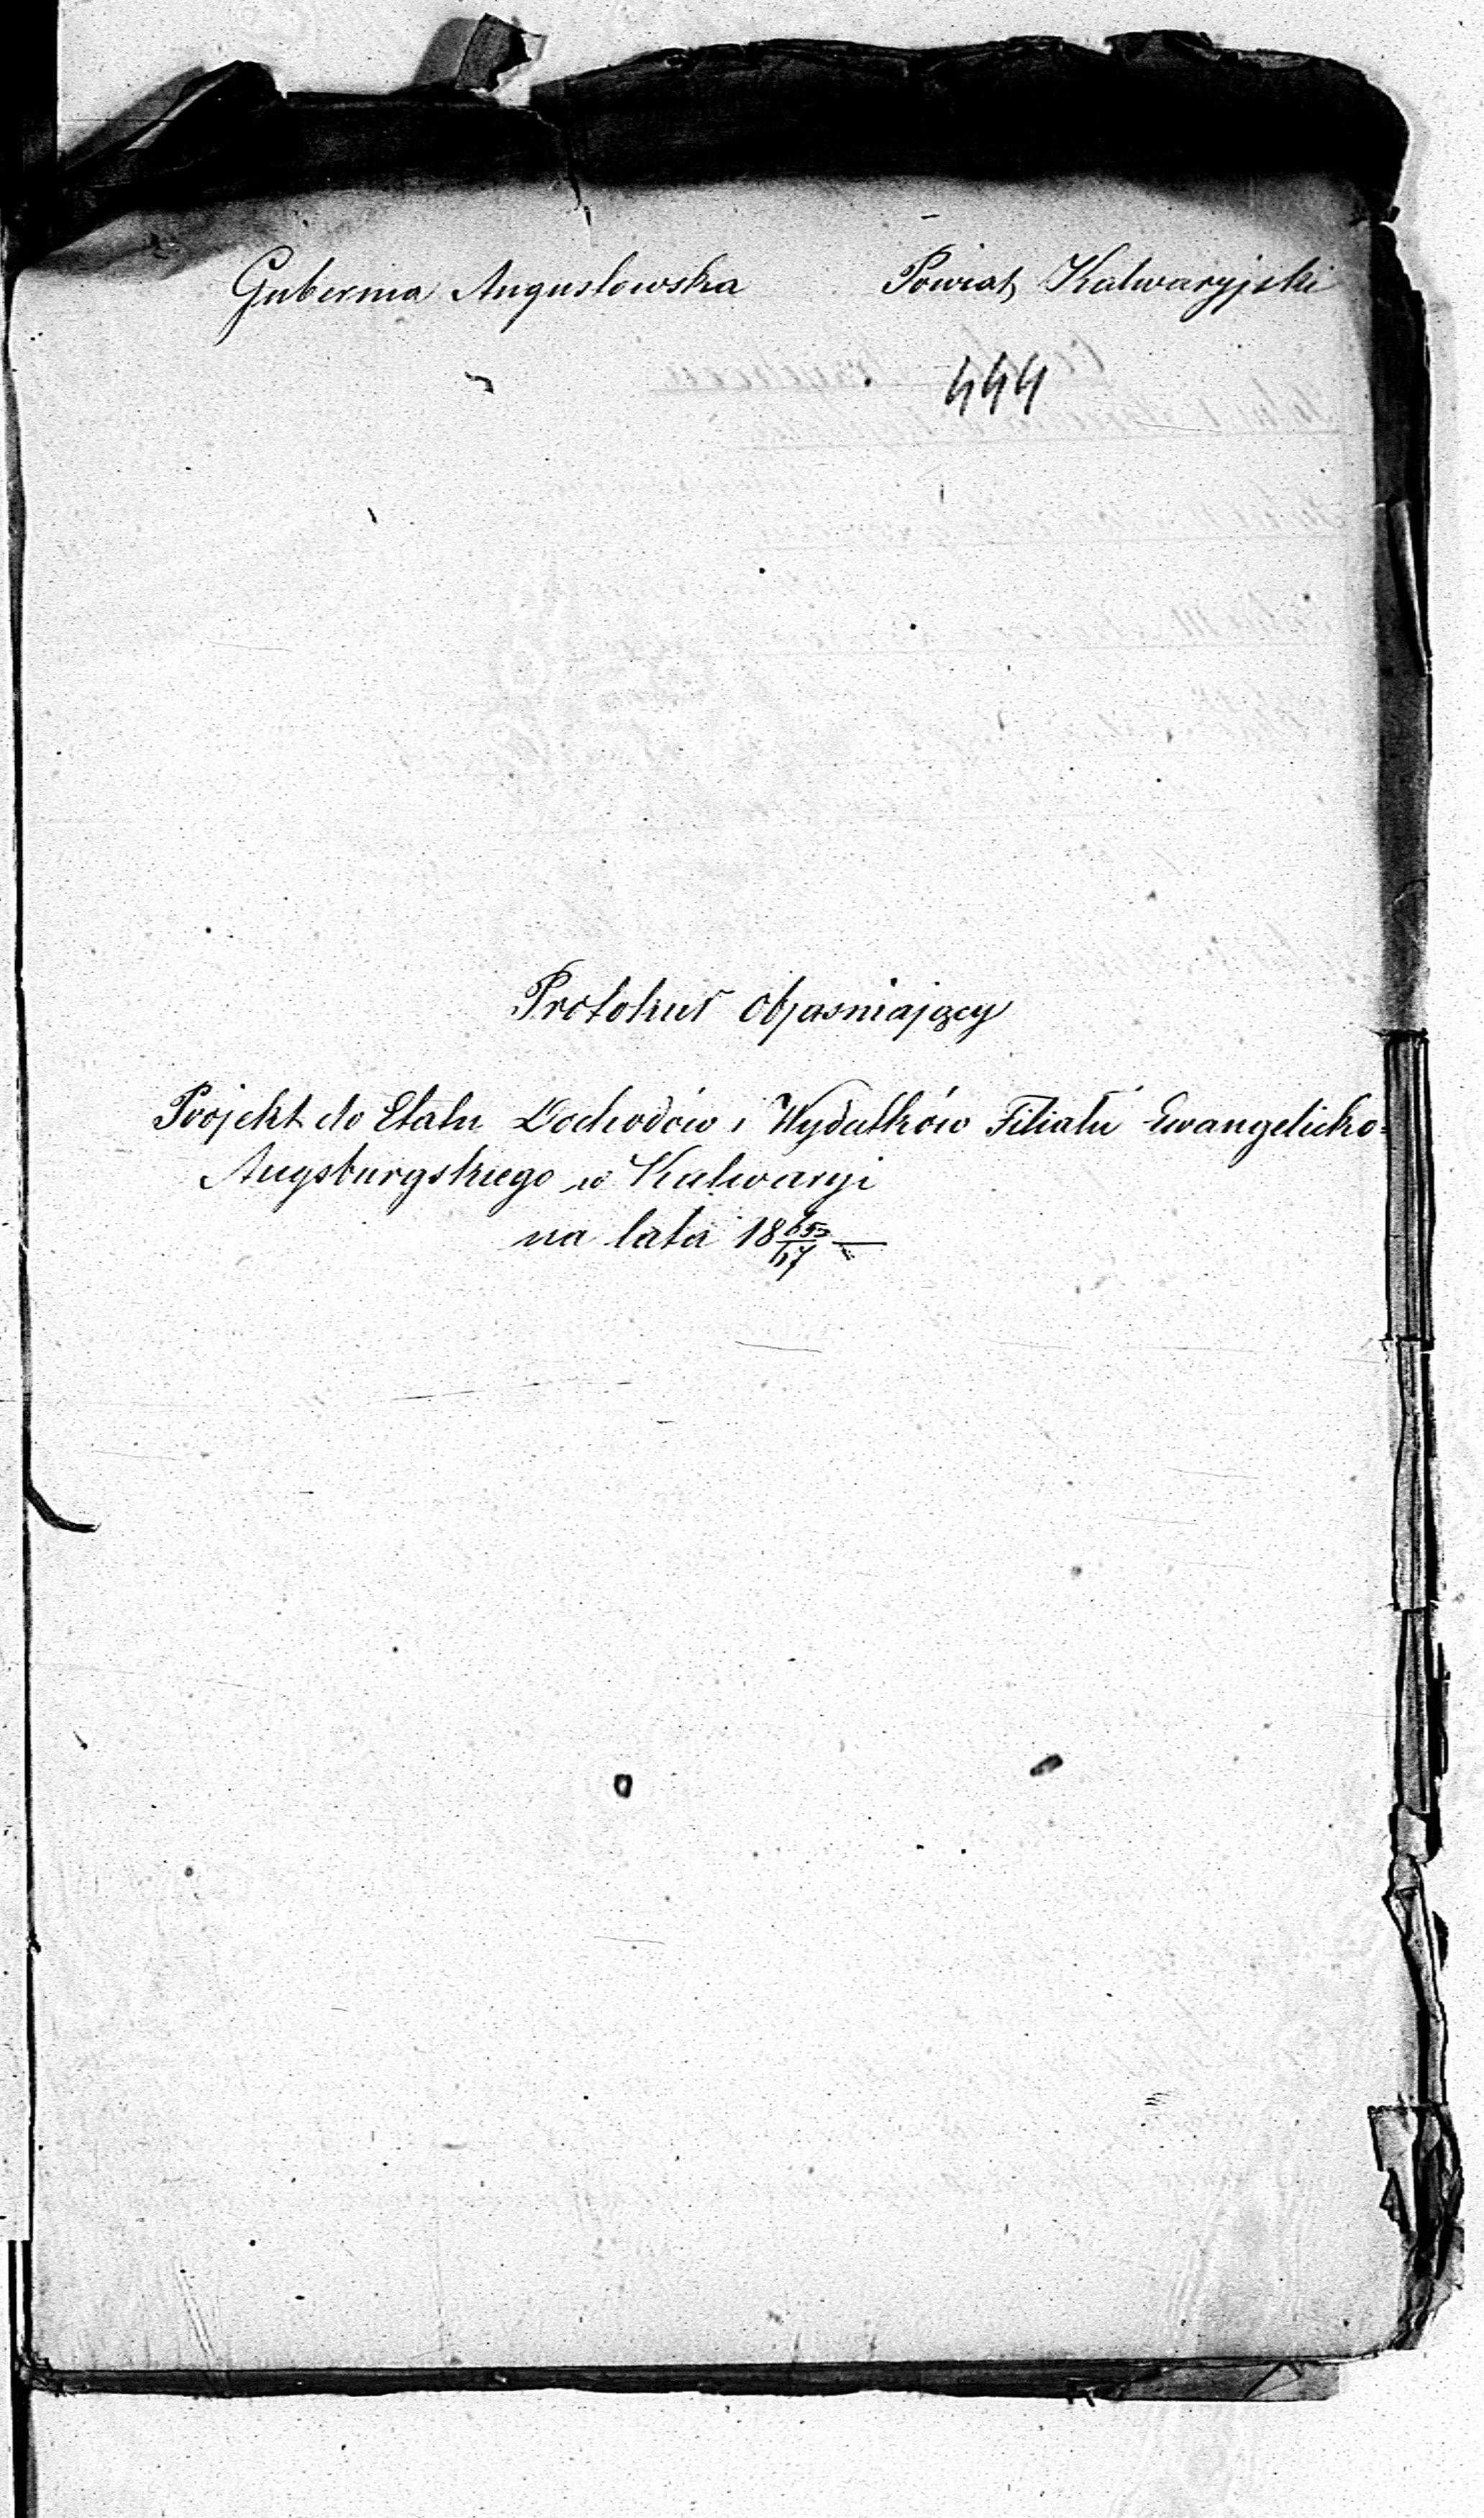 Gubernia Augustowska Powiat Kalwaryjski
444
Protokuł objasniający
Projekt do Etatu Dochodów i Wydatków Filiału Ewangelicko-
Augsburgskiego w Kalwaryi
na lata 1865/67